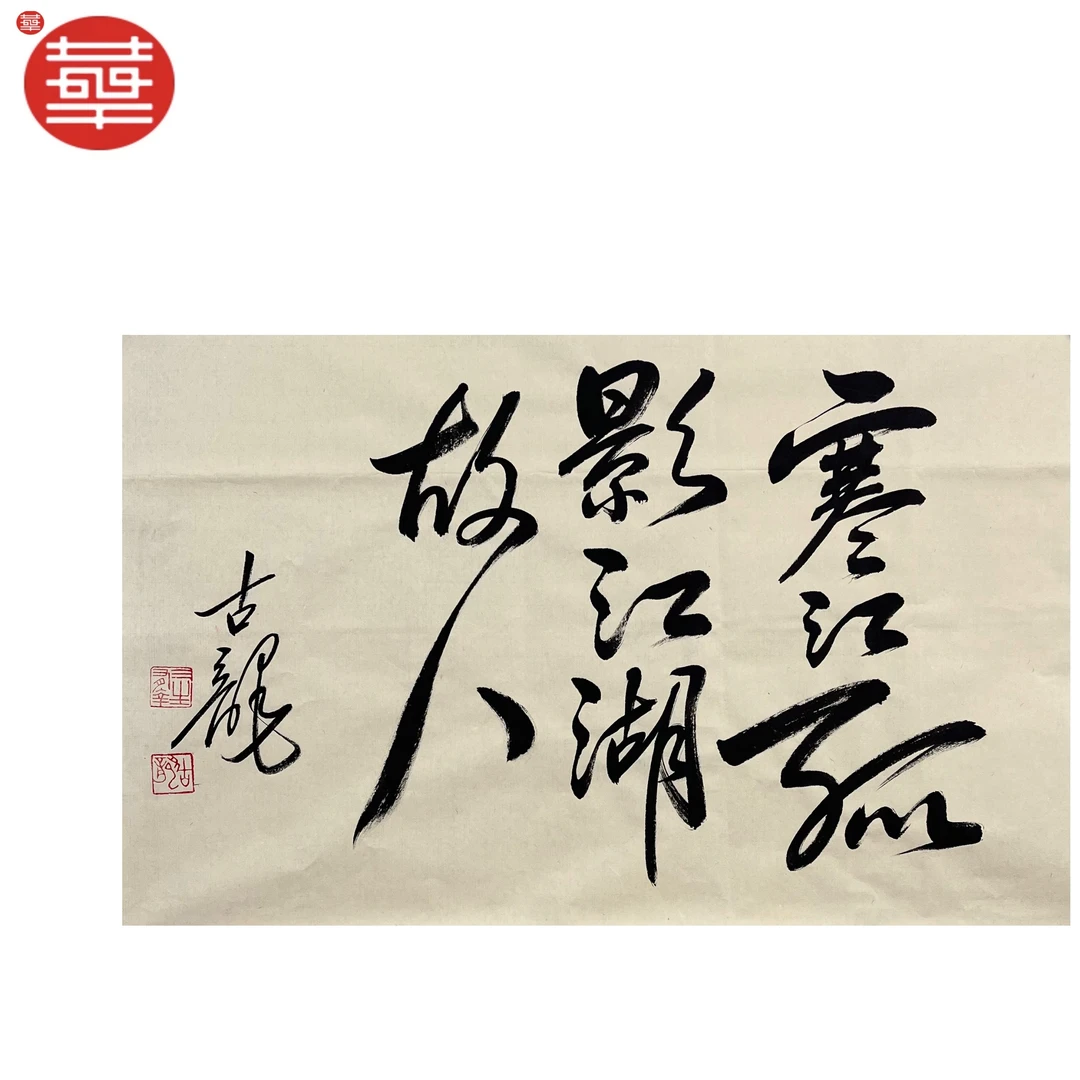 華
華
寒江孤
影江湖
故人
古龍